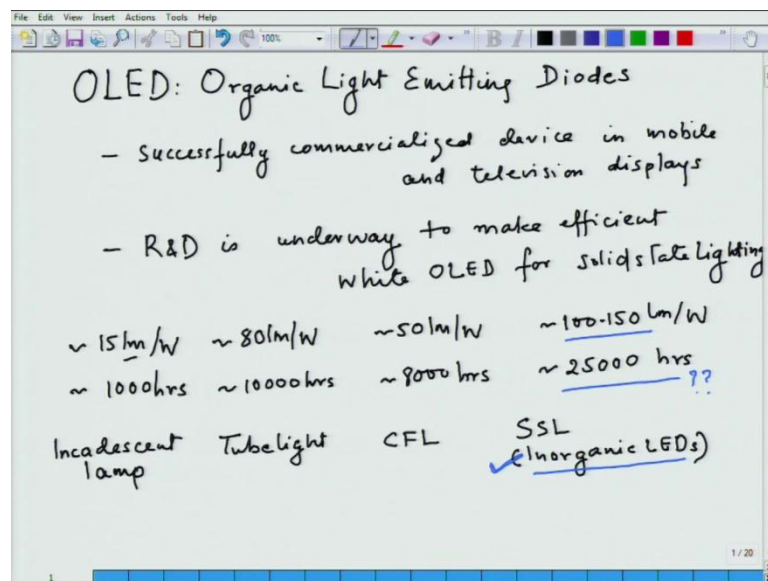 File Edit View Insert Actions Tools Help
100%
B I
OLED: Organic Light Emitting Diodes
- Successfully commercialized device in mobile
and television displays
- R&D is underway to make efficient
white OLED for solidstate Lighting
~ 15 lm/W ~ 80 lm/W ~50 lm/W ~100-150 lm/W
~ 1000hrs ~10000hrs ~8000 hrs ~ 25000 hrs ??
Incadescent Tubelight CFL SSL
lamp (Inorganic LEDs)
1 / 20
1